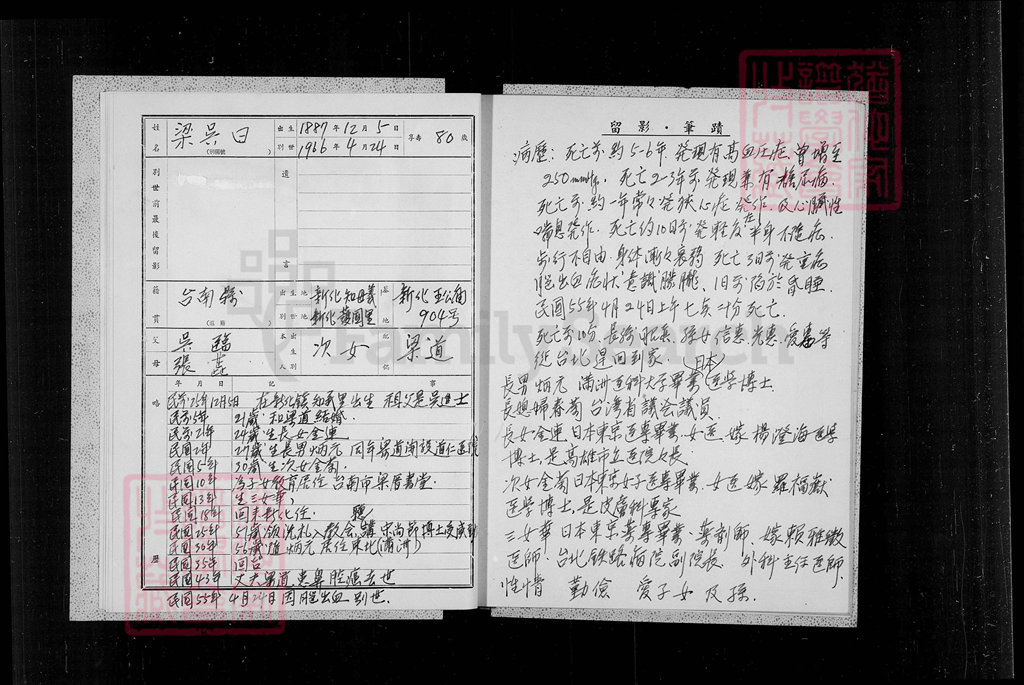 姓名 梁吳日 (別號)
出生 1887年12月5日
別世 1966年4月24日
享壽 80 歲
別世前最後留影
遺言
籍貫 台南縣 (區籍)
出生地 新化知母義
別世地 新化護國里
墓地 新化公墓 904号
父 吳臨
母 張
本出生別 次女
配偶 梁道
略歷
年月日 記事
民前25年12月5日 在新化鎮知義里出生 祖父是吳進士
民前5年 21歲 和梁道結婚.
民前2年 24歲 生長女金連
民國2年 27歲 生長男炳元 同年梁道開設道仁医院
民國5年 30歲 生次女金菊.
民國10年 為子女教育居住台南市梁厝書堂.
民國13年 生三女華
民國18年 回來新化住.
民國25年 51歲 領洗礼入教会, 聽講宋尚節博士受感動
民國30年 56歲 隨炳元居住東北(滿洲)
民國35年 回台
民國43年 丈夫梁道患鼻腔癌去世
民國55年 4月24日因腦出血別世.
留影・筆蹟
病歷: 死亡前約5-6年. 発現有高血圧症, 曾增至
250mmHg. 死亡2-3年前発現兼有糖尿病.
死亡前約一年常々発狹心症発作. 及心臟性
喘息発作. 死亡約10日前発軽度左半身不遂症.
步行不自由. 身体漸々衰弱 死亡3日前発重病
腦出血症狀, 意識朦朧. 1日前陷於昏睡.
民國55年4月24日上午七点二十分死亡.
死亡前10分, 長孫昭, 孫女信惠, 光惠, 愛惠等
從台北趕回到家.
長男炳元 滿洲医科大学畢業 (日本)医学博士.
長媳婦春 台湾省議会議員
長女金連 日本東京医専畢業. 女医. 嫁楊澄海医学
博士, 是高雄市立医院々長.
次女金菊 日本東京女子医専畢業. 女医 嫁羅福嶽
医学博士, 是皮膚科専家
三女華 日本東京薬専畢業. 薬剤師. 嫁賴雅徽
医師. 台北鉄路病院副院長. 外科主任医師.
性情 勤儉 愛子女及孫.
FamilySearch